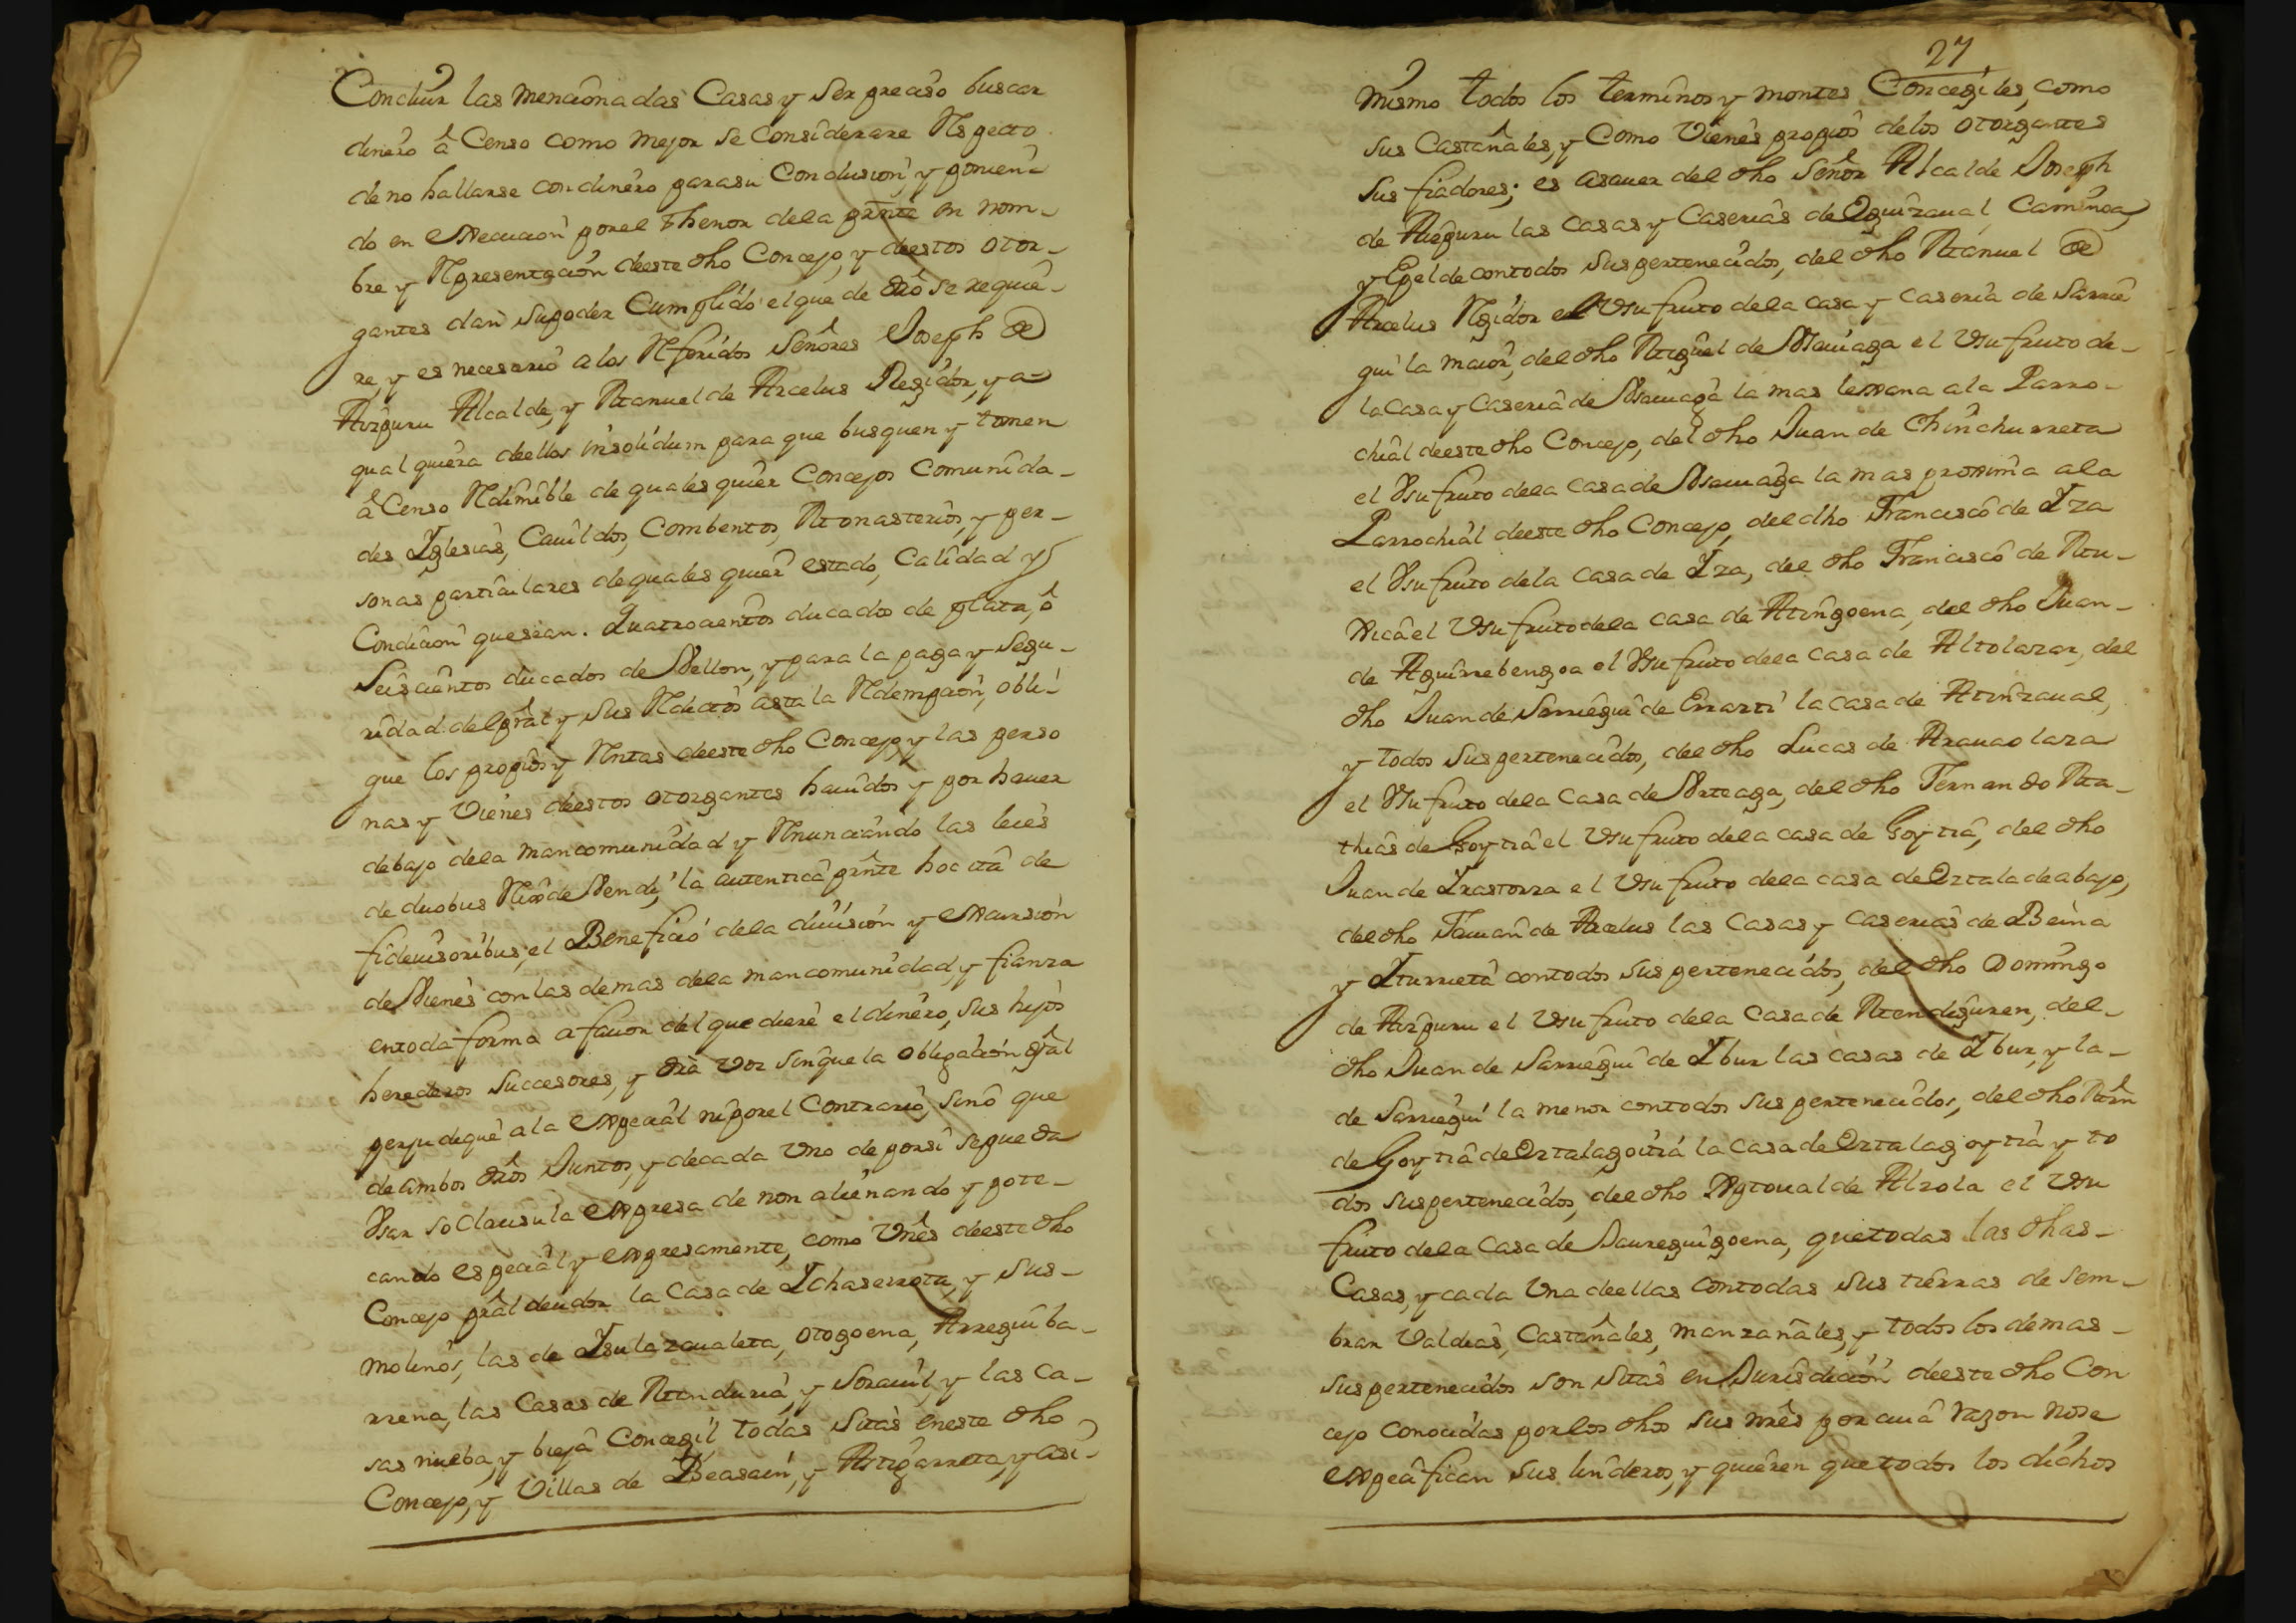 Concluir las mencionadas Casas y ser preciso buscar
dinero â Censo como mejor se considerare Respecto
de no hallarse con dinero para su Conclusion, y ponien-
do en execucion por el thenor de la presente en nom-
bre y Representacion deeste dho Concejo, y deestos otor-
gantes dan su poder Cumplido el que de dro se requie-
re, y es necesario a los Referidos Señores Joseph de
Aizpuru Alcalde, y Manuel de Arcelus Regidor, y a
qual quiera deellos insolidum para que busquen y tomen
â Censo Redimible de quales quier Concejos Comunida-
des Iglesias, Cauildos, Combentos, Monasterios, y per-
sonas particulares de quales quier estado, Calidad y
Condicion que sean. Quatrocientos ducados de plata, ô
Seiscientos ducados de Vellon, y para la paga y segu-
ridad del pral y sus Reditos asta la Redempcion, obli-
que los propios y Rentas deeste dho Concejo y las perso
nas y Vienes deestos otorgantes hauidos y por hauer
debajo dela mancomunidad y Renunciando las leies
de duobus Reix de Vendi, la autentica prnte hoc ita de
fideiusoribus, el Beneficio dela diuision y excursion
de Vienes con las demas dela mancomunidad, y fianza
en toda forma a fauor del que diere el dinero, sus hijos
herederos Succesores, y dra voz sin que la obligacion gral
perjudique a la expecial ni por el Contrario, sino que
de ambos dros Juntos, y decada Uno de por si se pueda
Vsar so Clausula expresa de non alienando y pote-
cando especial y expresamente, como Vnes deeste dho
Concejo pral deudor la Casa de Ichaserreta, y sus
molinos, las de Isulazaualeta, otogoena, Arreguiba-
rrena, las Casas de Minduria, y Sorauil, y las Ca-
sas nueba, y bieja Concegil, todas sitas en este dho
Concejo, y Villas de Beasain, y Astigarreta, y asi-
27
mismo todos los terminos y montes Concegiles, como
sus Castañales, y Como Vienes propios delos otorgantes
sus fiadores; es asauer del dho Señor Alcalde Joseph
de Aizpuru las casas y Caserias de Eguizaual, Caminoa,
y Epelde con todos sus pertenecidos, del dho Manuel de
Arcelus Regidor el Vsufruto dela casa y caseria de Sarrie
gui la maior, del dho Miguel de Vsauiaga el Vsufruto de-
la Casa y Caseria de Vsauiaga la mas lexana ala Parro-
chial deeste dho Concejo, del dho Juan de Chinchurreta
el Vsufruto dela casa de Vsauiaga la mas proxima ala
Parrochial deeste dho Concejo, del dho Francisco de Iza
el Vsufruto dela casa de Iza, del dho Francisco de Mu-
xica el Vsufruto dela casa de Atingoena, del dho Juan-
de Aguirrebengoa el Vsufruto dela casa de Altolazar, del
dho Juan de Sarriegui de Errarti la casa de Atinzaual,
y todos sus pertenecidos, del dho Lucas de Araucolaza
el Vsufruto dela casa de Vrteaga, del dho Fernando Ma-
thias de Goytia el Vsufruto dela casa de Goytia, del dho
Juan de Irastorza el Vsufruto dela casa de Ortala de abajo,
del dho Juan de Arcelus las Casas y caserias de Beina
y Iturrieta contodos sus pertenecidos, del dho Domingo
de Aizpuru el Vsufruto dela Casa de Mendiguren, del-
dho Juan de Sarriegui de Ibur las casas de Ibur, y la-
de Sarriegui la menor contodos sus pertenecidos, del dho Mrn
de Goytia de Ortalagoitia la casa de Ortalagoytia y to
dos sus pertenecidos, del dho Xptoual de Alzola el Vsu
fruto dela casa de Jaureguigoena, que todas las dhas-
Casas, y cada Vna deellas contodas sus tierras de sem-
brar Valdias, Castañales, manzanales, y todos los demas-
sus pertenecidos son sitas en Jurisdicion deeste dho Con
cejo conocidas por los dhos sus nres por cuia razon nose
expecifican sus linderos, y quieren que todos los dichos